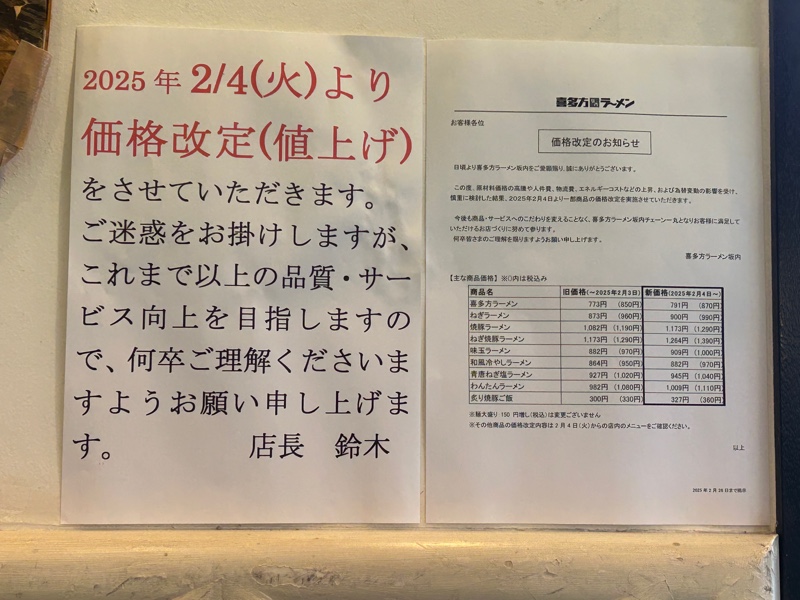 2025 年 2/4(火)より
価格改定(値上げ)
をさせていただきます。
ご迷惑をお掛けしますが、
これまで以上の品質・サー
ビス向上を目指しますの
で、何卒ご理解くださいま
すようお願い申し上げま
す。 店長 鈴木
喜多方ラーメン
お客様各位
価格改定のお知らせ
日頃より喜多方ラーメン坂内をご愛顧賜り、誠にありがとうございます。
この度、原材料価格の高騰や人件費、物流費、エネルギーコストなどの上昇、および為替変動の影響を受け、
慎重に検討した結果、2025年2月4日より一部商品の価格改定を実施させていただきます。
今後も商品・サービスへのこだわりを変えることなく、喜多方ラーメン坂内チェーン一丸となりお客様に満足して
いただけるお店づくりに努めて参ります。
何卒皆さまのご理解を賜りますようお願い申し上げます。
喜多方ラーメン坂内
【主な商品価格】 ※()内は税込み
商品名 旧価格(~2025年2月3日) 新価格(2025年2月4日~)
喜多方ラーメン 773円 (850円) 791円 (870円)
ねぎラーメン 873円 (960円) 900円 (990円)
焼豚ラーメン 1,082円 (1,190円) 1,173円 (1,290円)
ねぎ焼豚ラーメン 1,173円 (1,290円) 1,264円 (1,390円)
味玉ラーメン 882円 (970円) 909円 (1,000円)
和風冷やしラーメン 864円 (950円) 882円 (970円)
青唐ねぎ塩ラーメン 927円 (1,020円) 945円 (1,040円)
わんたんラーメン 982円 (1,080円) 1,009円 (1,110円)
炙り焼豚ご飯 300円 (330円) 327円 (360円)
※麺大盛り 150 円増し(税込)は変更ございません
※その他商品の価格改定内容は 2 月 4 日(火)からの店内のメニューをご確認ください。
以上
2025 年 2 月 28 日まで掲示